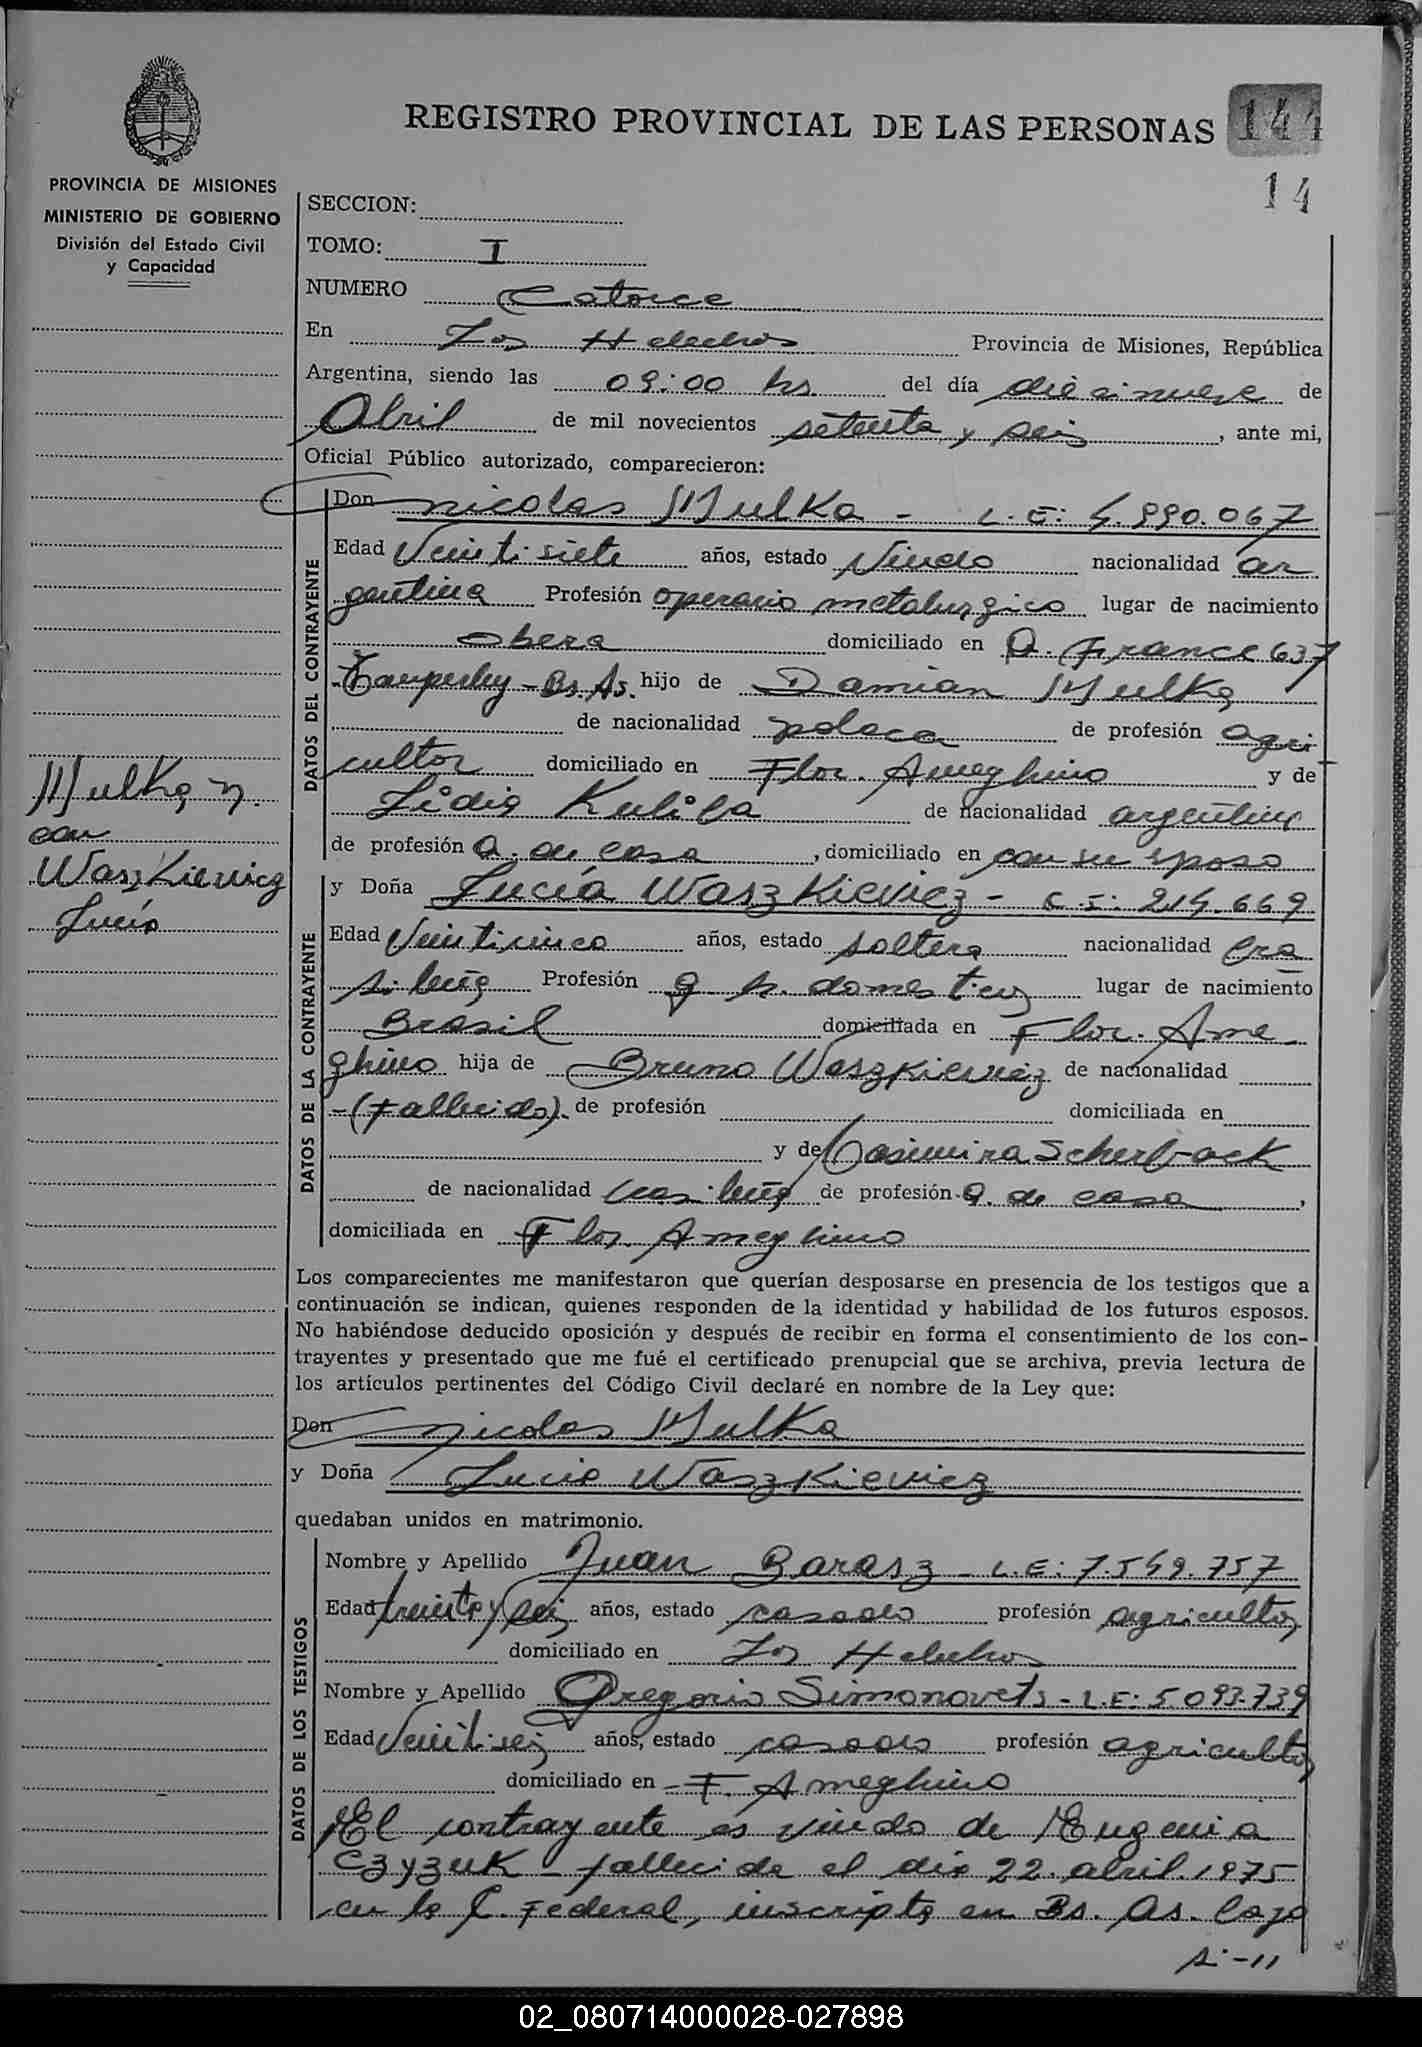 REGISTRO PROVINCIAL DE LAS PERSONAS 144
14
PROVINCIA DE MISIONES
MINISTERIO DE GOBIERNO
División del Estado Civil
y Capacidad
SECCION:
TOMO: I
NUMERO Catorce
En Los Helechos Provincia de Misiones, República
Argentina, siendo las 09:00 hs. del día diecinueve de
Abril de mil novecientos setenta y seis, ante mi,
Oficial Público autorizado, comparecieron:
DATOS DEL CONTRAYENTE
Don Nicolas Mulka - L.E: 4.990.067
Edad Veintisiete años, estado Viudo nacionalidad ar
gentina Profesión operario metalurgico lugar de nacimiento
Obera domiciliado en A. France 637
Temperley - Bs. As. hijo de Damian Mulka
de nacionalidad polaca de profesión agri
cultor domiciliado en Flor. Ameghino y de
Lidia de nacionalidad argentina
de profesión a. de casa, domiciliado en con su esposo
Mulka, N.
con
Waszkievicz
Lucía
DATOS DE LA CONTRAYENTE
y Doña Lucía Waszkievicz - C.I: 214.669
Edad Veinticinco años, estado soltera nacionalidad bra
sileña Profesión q. h. domesticos lugar de nacimiento
Brasil domiciliada en Flor. Ame
ghino hija de Bruno Waszkievicz de nacionalidad
-(fallecido)- de profesión domiciliada en
y de Casimira Scherback
de nacionalidad brasileña de profesión a. de casa,
domiciliada en Flor. Ameghino
Los comparecientes me manifestaron que querían desposarse en presencia de los testigos que a
continuación se indican, quienes responden de la identidad y habilidad de los futuros esposos.
No habiéndose deducido oposición y después de recibir en forma el consentimiento de los con-
trayentes y presentado que me fué el certificado prenupcial que se archiva, previa lectura de
los artículos pertinentes del Código Civil declaré en nombre de la Ley que:
Don Nicolas Mulka
y Doña Lucia Waszkievicz
quedaban unidos en matrimonio.
DATOS DE LOS TESTIGOS
Nombre y Apellido Juan Barasz - L.E: 7.549.757
Edad treinta y seis años, estado casado profesión agricultor
domiciliado en Los Helechos
Nombre y Apellido Gregorio Simonovets - L.E: 5.093.739
Edad Veintiseis años, estado casado profesión agricultor
domiciliado en F. Ameghino
El contrayente es viudo de Eugenia
Czyzuk - fallecida el día 22. abril. 1975
en la C. Federal, inscripta en Bs. As. bajo
02_080714000028-027898